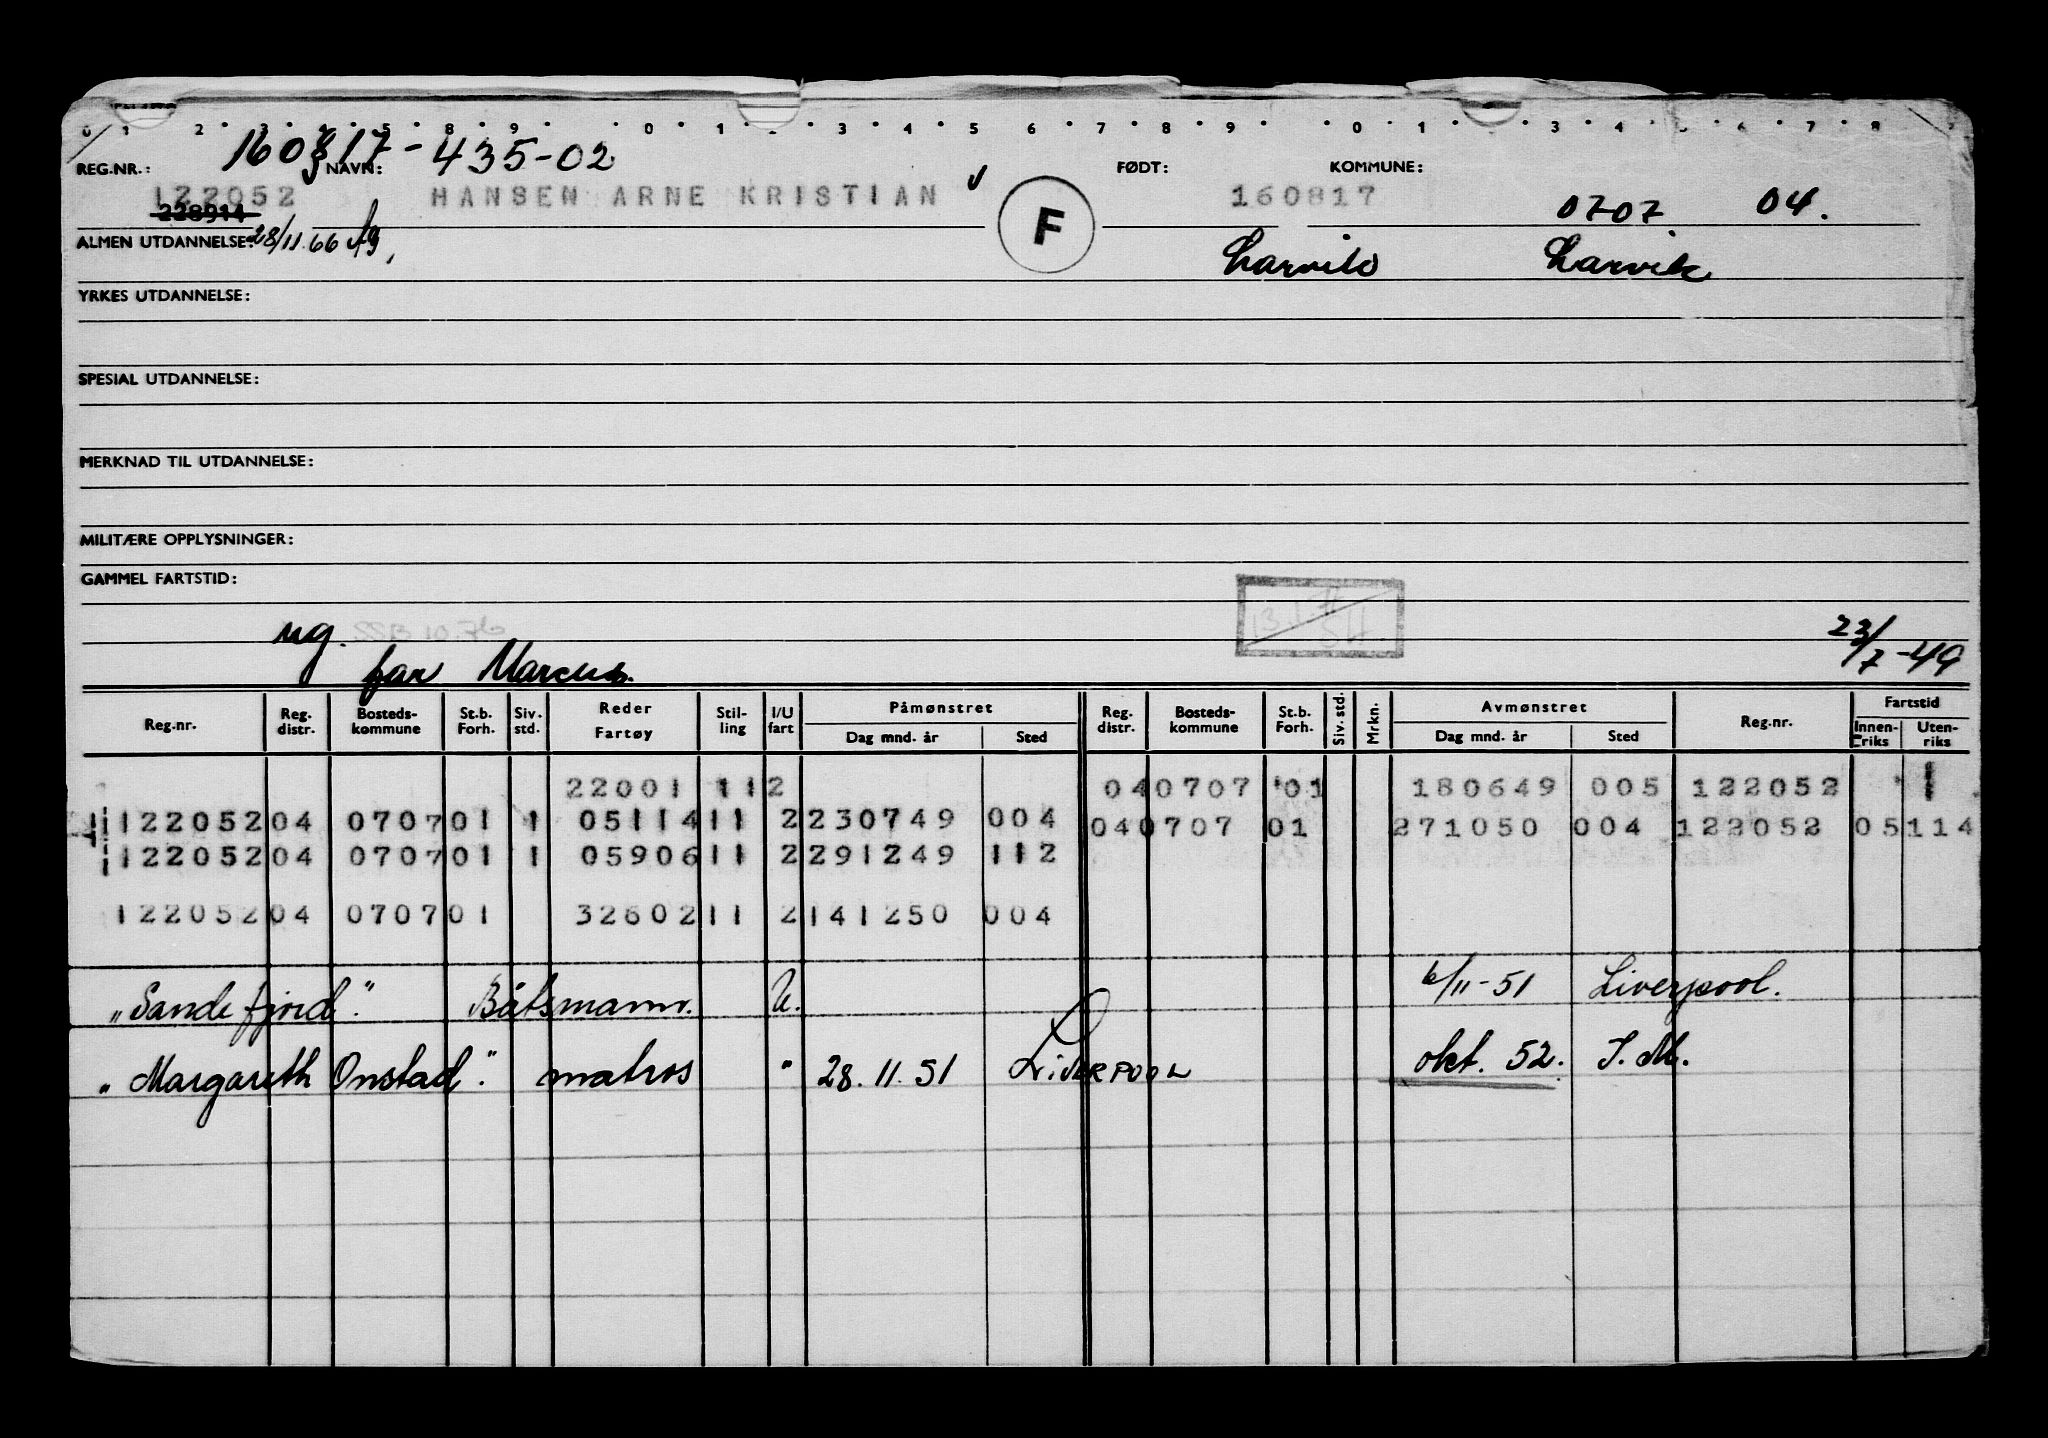 0 1 2 3 4 5 8 9 0 1 2 3 4 5 6 7 8 9 0 1 3 4 5 6 7 8
160817-435-02
REG.NR.: NAVN: FØDT: KOMMUNE:
122052 HANSEN ARNE KRISTIAN 160817
228914 F 0707 04.
ALMEN UTDANNELSE: 28/11.66 Larvik Larvik
YRKES UTDANNELSE:
SPESIAL UTDANNELSE:
MERKNAD TIL UTDANNELSE:
MILITÆRE OPPLYSNINGER:
GAMMEL FARTSTID:
ug. SSB 10.76 23/7-49
far Marcus.
Reg.nr. Reg. distr. Bosteds-kommune St.b. Forh. Siv. std. Reder Fartøy Stil-ling I/U fart Påmønstret Dag mnd. år Sted Reg. distr. Bosteds-kommune St.b. Forh. Siv. std. Mrkn. Avmønstret Dag mnd. år Sted Reg.nr. Fartstid Innen-riks Uten-riks
22001 11 2 04 0707 01 180649 005 122052 1
122052 04 0707 01 1 05114 11 2 230749 004 04 0707 01 271050 004 122052 05 114
122052 04 0707 01 1 05906 11 2 291249 112
122052 04 0707 01 32602 11 2 141250 004
"Sandefjord". Båtsmann. U. 6/11-51 Liverpool.
"Margareth Onstad". matros " 28.11.51 LiVERPOOL okt. 52. I.M.